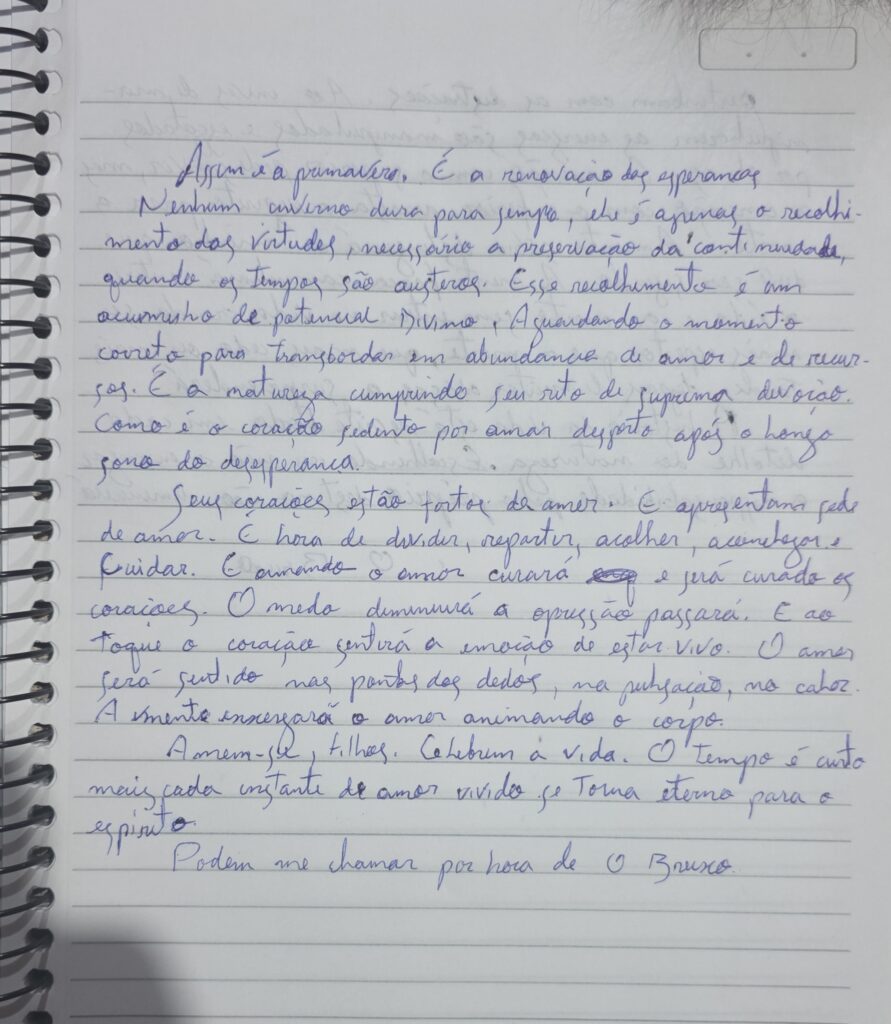 Assim é a primavera. É a renovação das esperanças
Nenhum inverno dura para sempo, ele é apenas o recolhi-
mento das virtudes, necessário a preservação da continuidade,
quando os tempos são austeros. Esse recolhimento é um
acumunho de potencial Divino, Aguardando o momento
correto para transbordar em abundancia de amor e de recur-
sos. É a natureza cumprindo seu rito de suprema devoção.
Como é o coração sedento por amar desperto após o longo
sono da desesperança.
Seus corações estão fortes de amor. E apresentam sede
de amor. É hora de dividir, repartir, acolher, aconchegar e
Cuidar. E amando o amor curará e será curado os
corações. O medo diminuirá a opressão passará. E ao
toque o coração sentirá a emoção de estar vivo. O amor
será sentido nas pontas dos dedos, na pulsação, no calor.
A mente enxergará o amor animando o corpo.
Amem-se, filhos. Celebrem a vida. O tempo é curto
mais cada instante de amor vivido se torna eterno para o
espirito.
Podem me chamar por hora de O Bruxo.